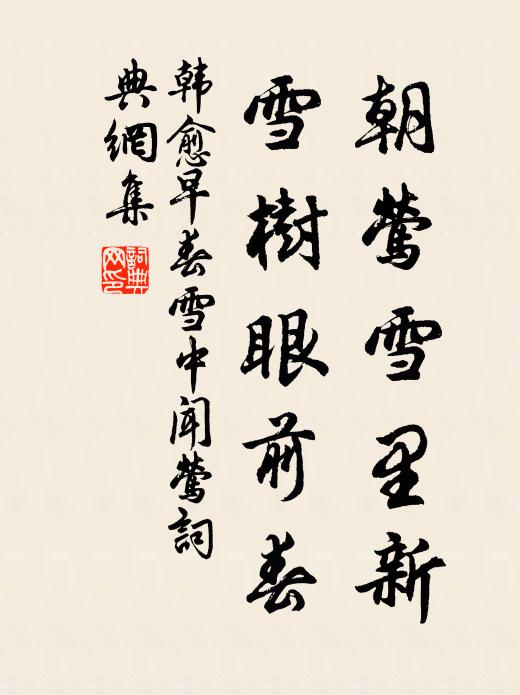 朝莺雪里新
雪樹眼前春
韩愈早春雪中闻莺詞
典網集
詞典
网印